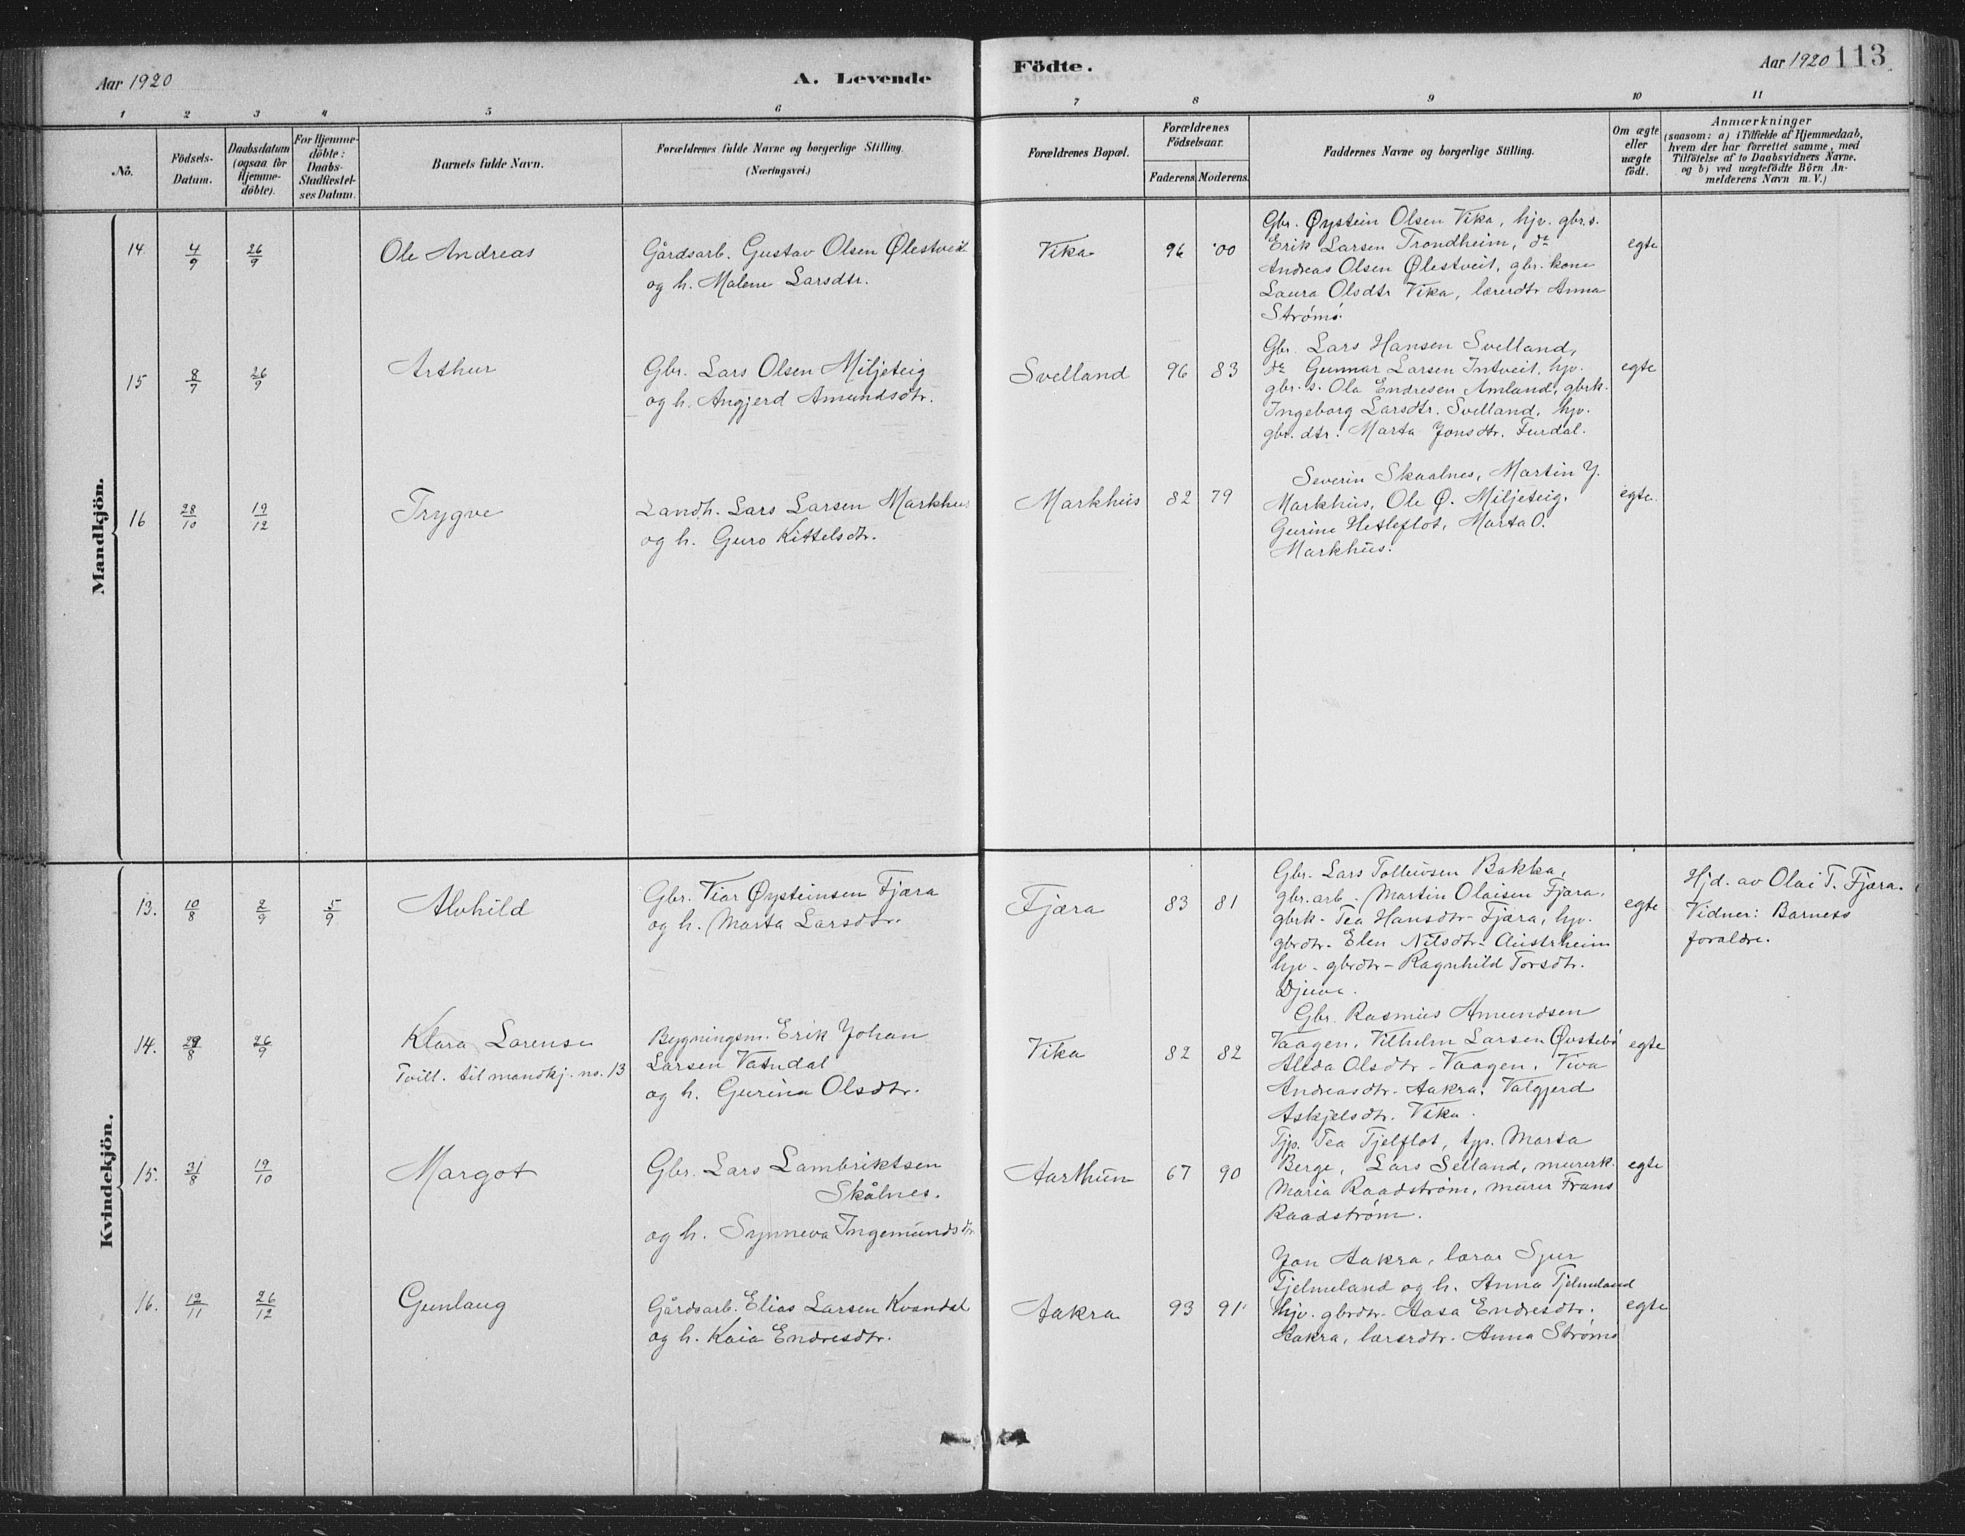 Aar 1920
A. Levende
Födte.
Aar 1920 113
1 2 3 4 5 6 7 8 9 10 11
No.
Födsels-
Datum.
Daabsdatum
(ogsaa for
Hjemme-
döbte).
For Hjemme-
döbte:
Daabs-
Stadfæstel-
ses Datum.
Barnets fulde Navn.
Forældrenes fulde Navne og borgerlige Stilling.
(Næringsvei.)
Forældrenes Bopæl.
Forældrenes
Födselsaar.
Faderens. Moderens.
Faddernes Navne og borgerlige Stilling.
Om ægte
eller
uægte
födt.
Anmærkninger
(saasom: a) i Tilfælde af Hjemmedaab,
hvem der har forrettet samme, med
Tilföielse af to Daabsvidners Navne.
og b) ved uægtefödte Börn An-
melderens Navn m. V.)
Mandkjön.
14 4/9 26/9 Ole Andreas
Gårdsarb. Gustav Olsen Ølestveit
og h. Malene Larsdtr.
Vika 96 '00
Gbr. Øystein Olsen Vika, hjv. gbr.s.
Erik Larsen Trondheim, do
Andreas Olsen Ølestveit, gbr. kone
Laura Olsdtr Vika, lærerdtr Anna
Strømø.
egte
15 8/7 26/9 Arthur
Gbr. Lars Olsen Miljeteig
og h. Angjerd Amundsdtr.
Svelland 96 83
Gbr. Lars Hansen Svelland,
do Gunnar Larsen Intveit, hjv.
gbr.s. Ola Endresen Amland, gbrk.
Ingeborg Larsdtr. Svelland, hjv.
gbr. dtr. Marta Jonsdtr. Furdal.
egte
16 28/10 19/12 Trygve
Landh. Lars Larsen Markhus
og h. Guro Kittelsdtr.
Markhus 82 79
Severin Skaalnes, Martin Y.
Markhus, Ole Ø. Miljeteig.
Gurine Hetleflot, Marta O.
Markhus.
egte.
Kvindekjön.
13. 10/8 2/9 5/9 Alvhild
Gbr. Tior Øysteinsen Fjæra
og h. Marta Larsdtr.
Fjæra 83 81
Gbr. Lars Tolleivsen Bakka,
gbr. arb. Martin Olaisen Fjæra.
gbrk. Tea Hansdtr. Fjæra, hjv.
gbrdtr. Elen Nilsdtr. Austrheim
hjv. gbrdtr. Ragnhild Torsdtr.
Djuve.
egte
Hjd. av Olai T. Fjæra.
Vidner: Barnets
foraldre.
14. 29/8 26/9 Klara Lorense
Tvill. til mandkj. no. 13
Bygningsm. Erik Johan
Larsen Vatndal
og h. Gurina Olsdtr.
Vika 82 82
Gbr. Rasmus Amundsen
Vaagen, Vilhelm Larsen Øvstebø
Alida Olsdtr. Vaagen, Viva
Andreasdtr. Aakra, Valgjerd
Askjelsdtr. Vika.
egte
15. 31/8 19/10 Margot
Gbr. Lars Lambriktsen
Skålnes.
og h. Synneva Ingemundsdtr
Aarthun 67 90
Tjp. Tea Tjelflot, tjp. Marta
Berge, Lars Selland, murerk.
Maria Raadstrøm, murer Frans
Raadstrøm.
egte
16. 12/11 26/12 Gunlaug
Gårdsarb. Elias Larsen Kvandal
og h. Kaia Endresdtr.
Aakra 93 91
Jon Aakra, lærar Sjur
Tjelmeland og h. Anna Tjelmeland
hjv. gbrdtr. Aasa Endresdtr.
Aakra, lærerdtr. Anna Strømø
egte